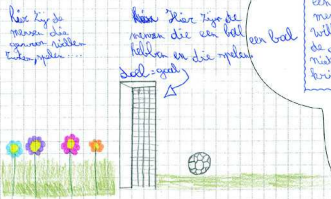 hier zijn de
mensen die
gewoon willen
buiten spelen....
Hier zijn de
mensen die een bal
hebben en die spelen.
een bal
doel = goal
een
m
wil
de
niet